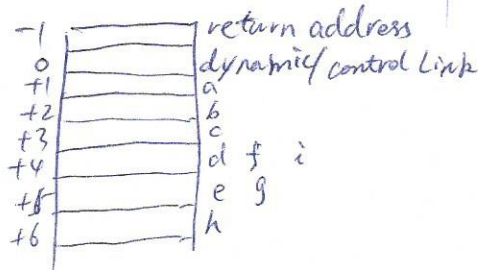 -1 return address
0 dynamic/control Link
+1 a
+2 b
+3 c
+4 d f i
+5 e g
+6 h